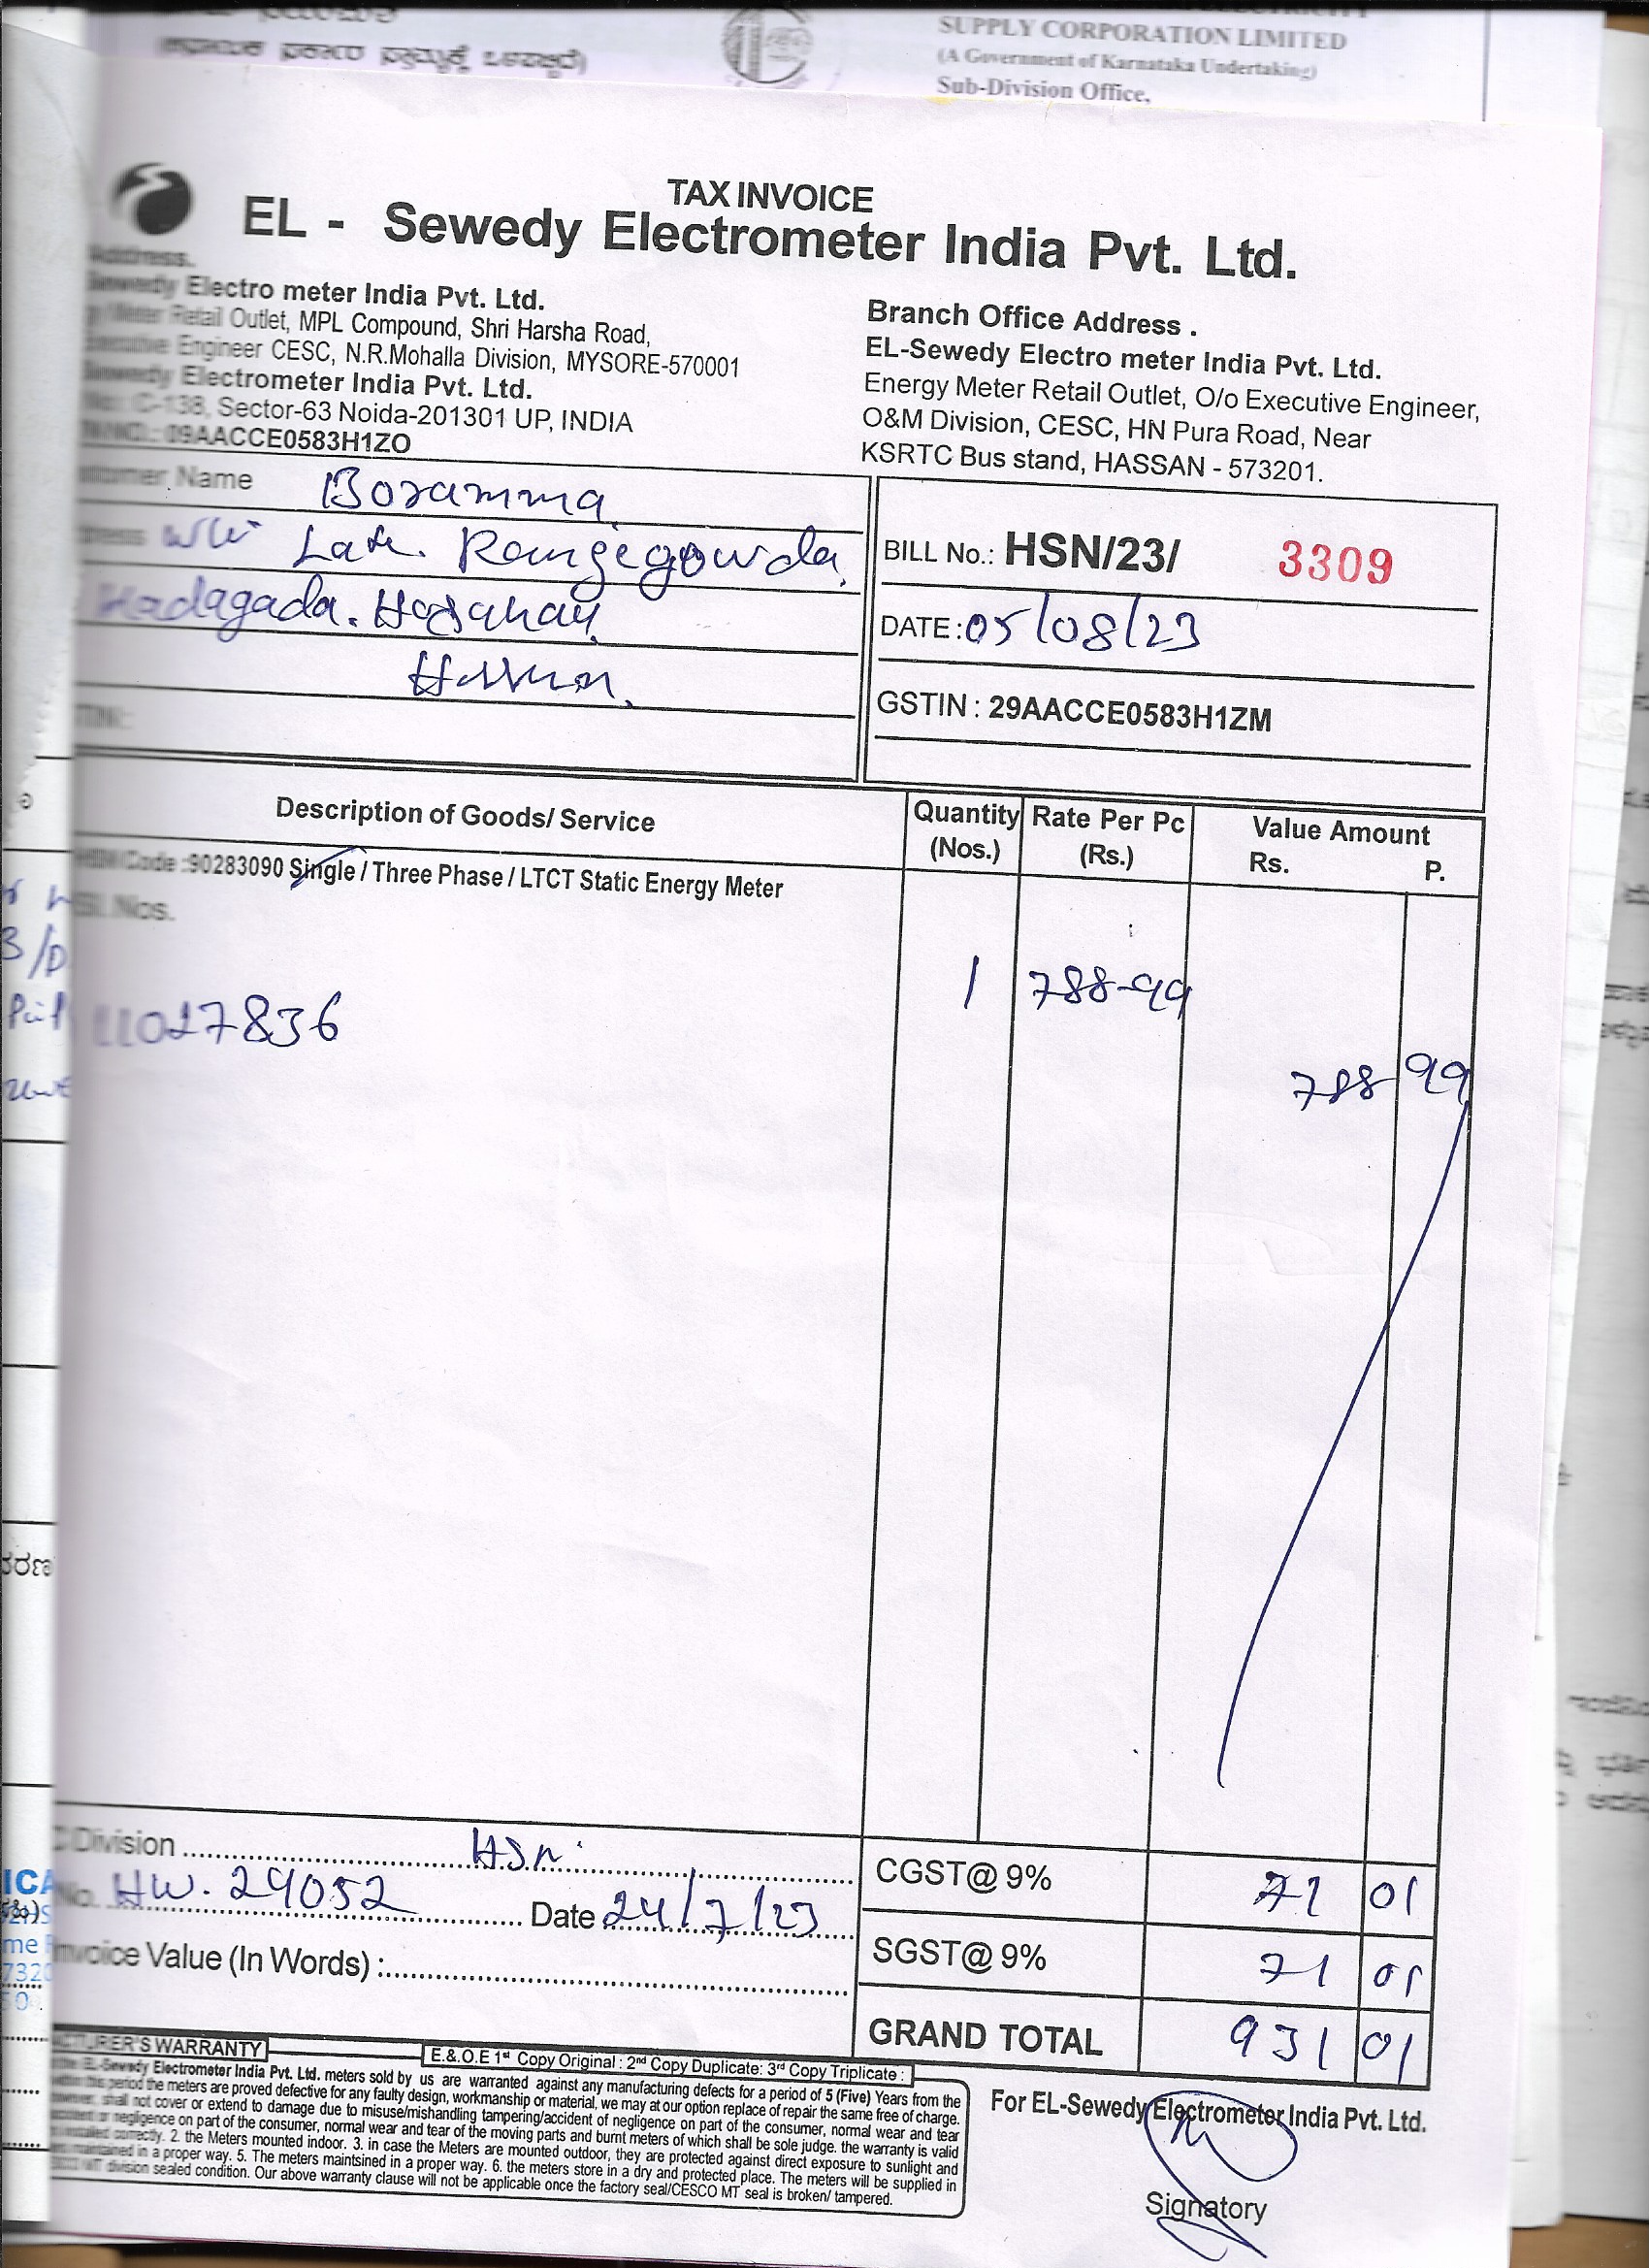 SUPPLY CORPORATION LIMITED
(A Government of Karnataka Undertaking)
Sub-Division Office,
TAX INVOICE
EL - Sewedy Electrometer India Pvt. Ltd.
Address.
Sewedy Electro meter India Pvt. Ltd.
Retail Outlet, MPL Compound, Shri Harsha Road,
Engineer CESC, N.R.Mohalla Division, MYSORE-570001
Sewedy Electrometer India Pvt. Ltd.
C-138, Sector-63 Noida-201301 UP, INDIA
09AACCE0583H1ZO
Branch Office Address .
EL-Sewedy Electro meter India Pvt. Ltd.
Energy Meter Retail Outlet, O/o Executive Engineer,
O&M Division, CESC, HN Pura Road, Near
KSRTC Bus stand, HASSAN - 573201.
Name Boramma
Late. Rangegowda.
Hadagada.
Hassan.
BILL No.: HSN/23/ 3309
DATE : 05/08/23
GSTIN : 29AACCE0583H1ZM
Description of Goods/ Service Quantity (Nos.) Rate Per Pc (Rs.) Value Amount Rs. P.
Code :90283090 Single / Three Phase / LTCT Static Energy Meter
Sl. Nos.
1 788-99
11027836
788 99
Division HSn.
CGST@ 9% 71 01
No. HW. 29052 Date 24/7/23
SGST@ 9% 71 01
Invoice Value (In Words) :
GRAND TOTAL 931 01
WARRANTY
E.&.O.E 1st Copy Original : 2nd Copy Duplicate: 3rd Copy Triplicate :
EL-Sewedy Electrometer India Pvt. Ltd. meters sold by us are warranted against any manufacturing defects for a period of 5 (Five) Years from the
this period the meters are proved defective for any faulty design, workmanship or material, we may at our option replace of repair the same free of charge.
shall not cover or extend to damage due to misuse/mishandling tampering/accident of negligence on part of the consumer, normal wear and tear
or negligence on part of the consumer, normal wear and tear of the moving parts and burnt meters of which shall be sole judge. the warranty is valid
correctly. 2. the Meters mounted indoor. 3. in case the Meters are mounted outdoor, they are protected against direct exposure to sunlight and
in a proper way. 5. The meters maintsined in a proper way. 6. the meters store in a dry and protected place. The meters will be supplied in
MT division sealed condition. Our above warranty clause will not be applicable once the factory seal/CESCO MT seal is broken/ tampered.
For EL-Sewedy Electrometer India Pvt. Ltd.
Signatory